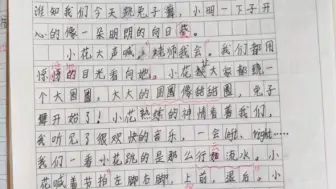 谁知我们今天跳兔子舞，小明一下子开
心的像一朵明朗的向日葵。
小花大声喊，老师我会。我们都用
惊讶的目光看向她。小花叫大家都绕一
个大圆圈，大大的圆圈像结结圈，兔子
舞开始了！小花熟练的神情看着我们，
我听见了很欢快的音乐，一会left，right……
我们一看小花跳的是那么行如流水。小
花喊着节拍左脚右脚，上前，退后，小